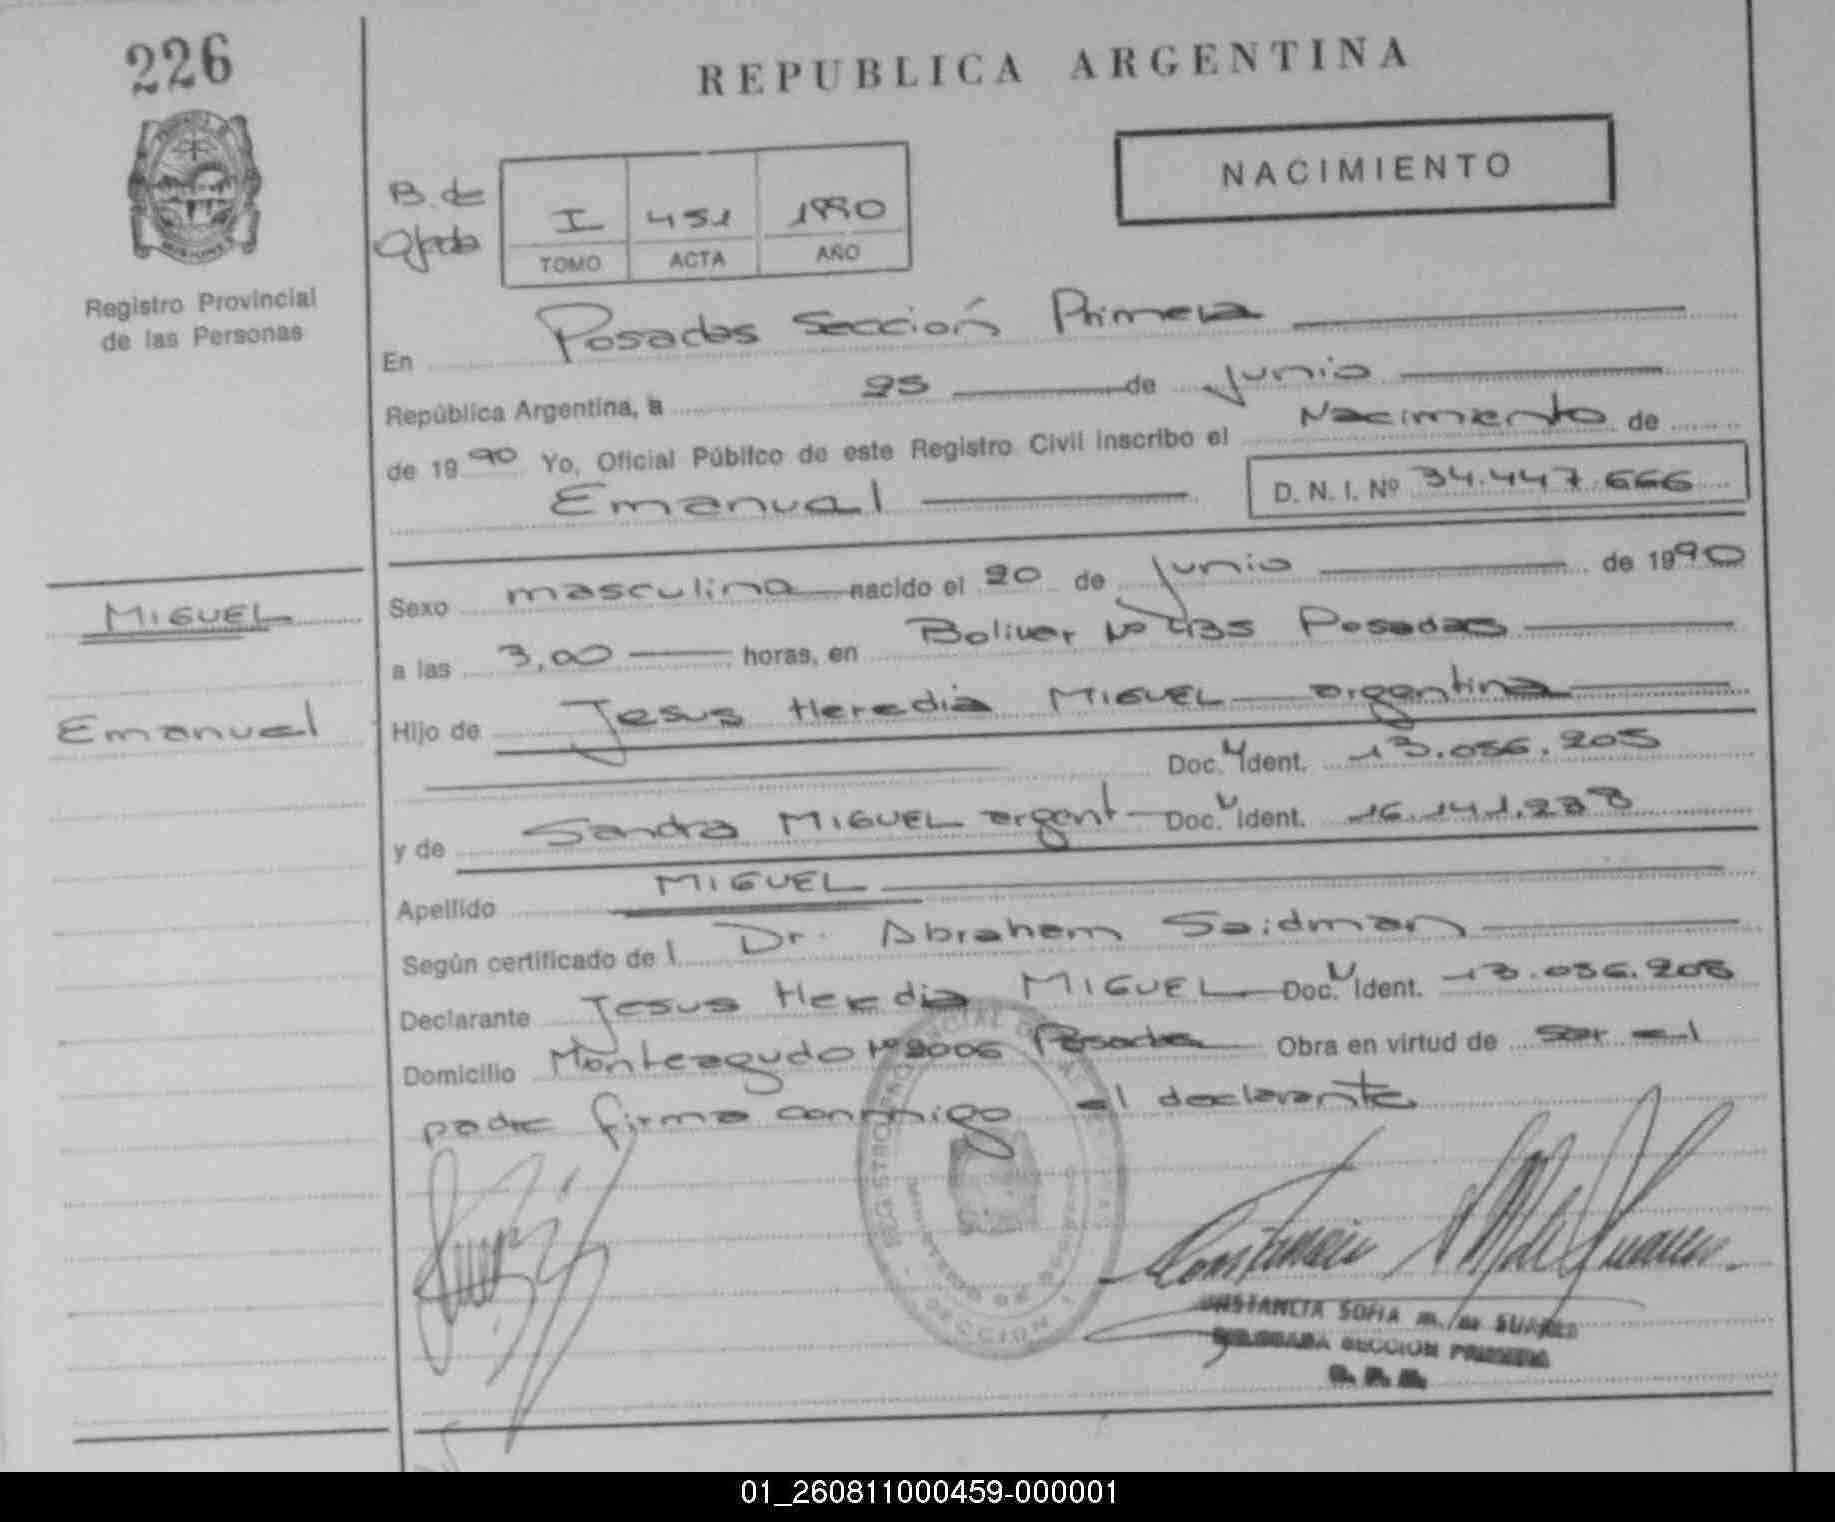 226
REPUBLICA ARGENTINA
NACIMIENTO
B. de
I 451 1990
TOMO ACTA AÑO
Registro Provincial
de las Personas
En Posadas Sección Primera
República Argentina, a 25 de junio
de 1990 Yo, Oficial Público de este Registro Civil inscribo el Nacimiento de
Emanuel
D. N. I. Nº 34.447.666
MIGUEL
Emanuel
Sexo masculino nacido el 20 de junio de 1990
a las 3,00 horas, en Bolivar Nº Posadas
Hijo de Jesus Heredia MIGUEL argentina
Doc. Ident. 13.056.205
y de Sandra MIGUEL argent Doc. Ident. 16.141.
Apellido MIGUEL
Según certificado de l Dr. Abraham Saidman
Declarante Jesus Heredia MIGUEL Doc. Ident. 13.056.205
Domicilio Monteagudo Nº 2006 Posadas Obra en virtud de ser el
padre firma conmigo el declarante
CONSTANCIA SOFIA M. de SUAREZ
DELEGADA SECCION PRIMERA
SECCION I
01_260811000459-000001